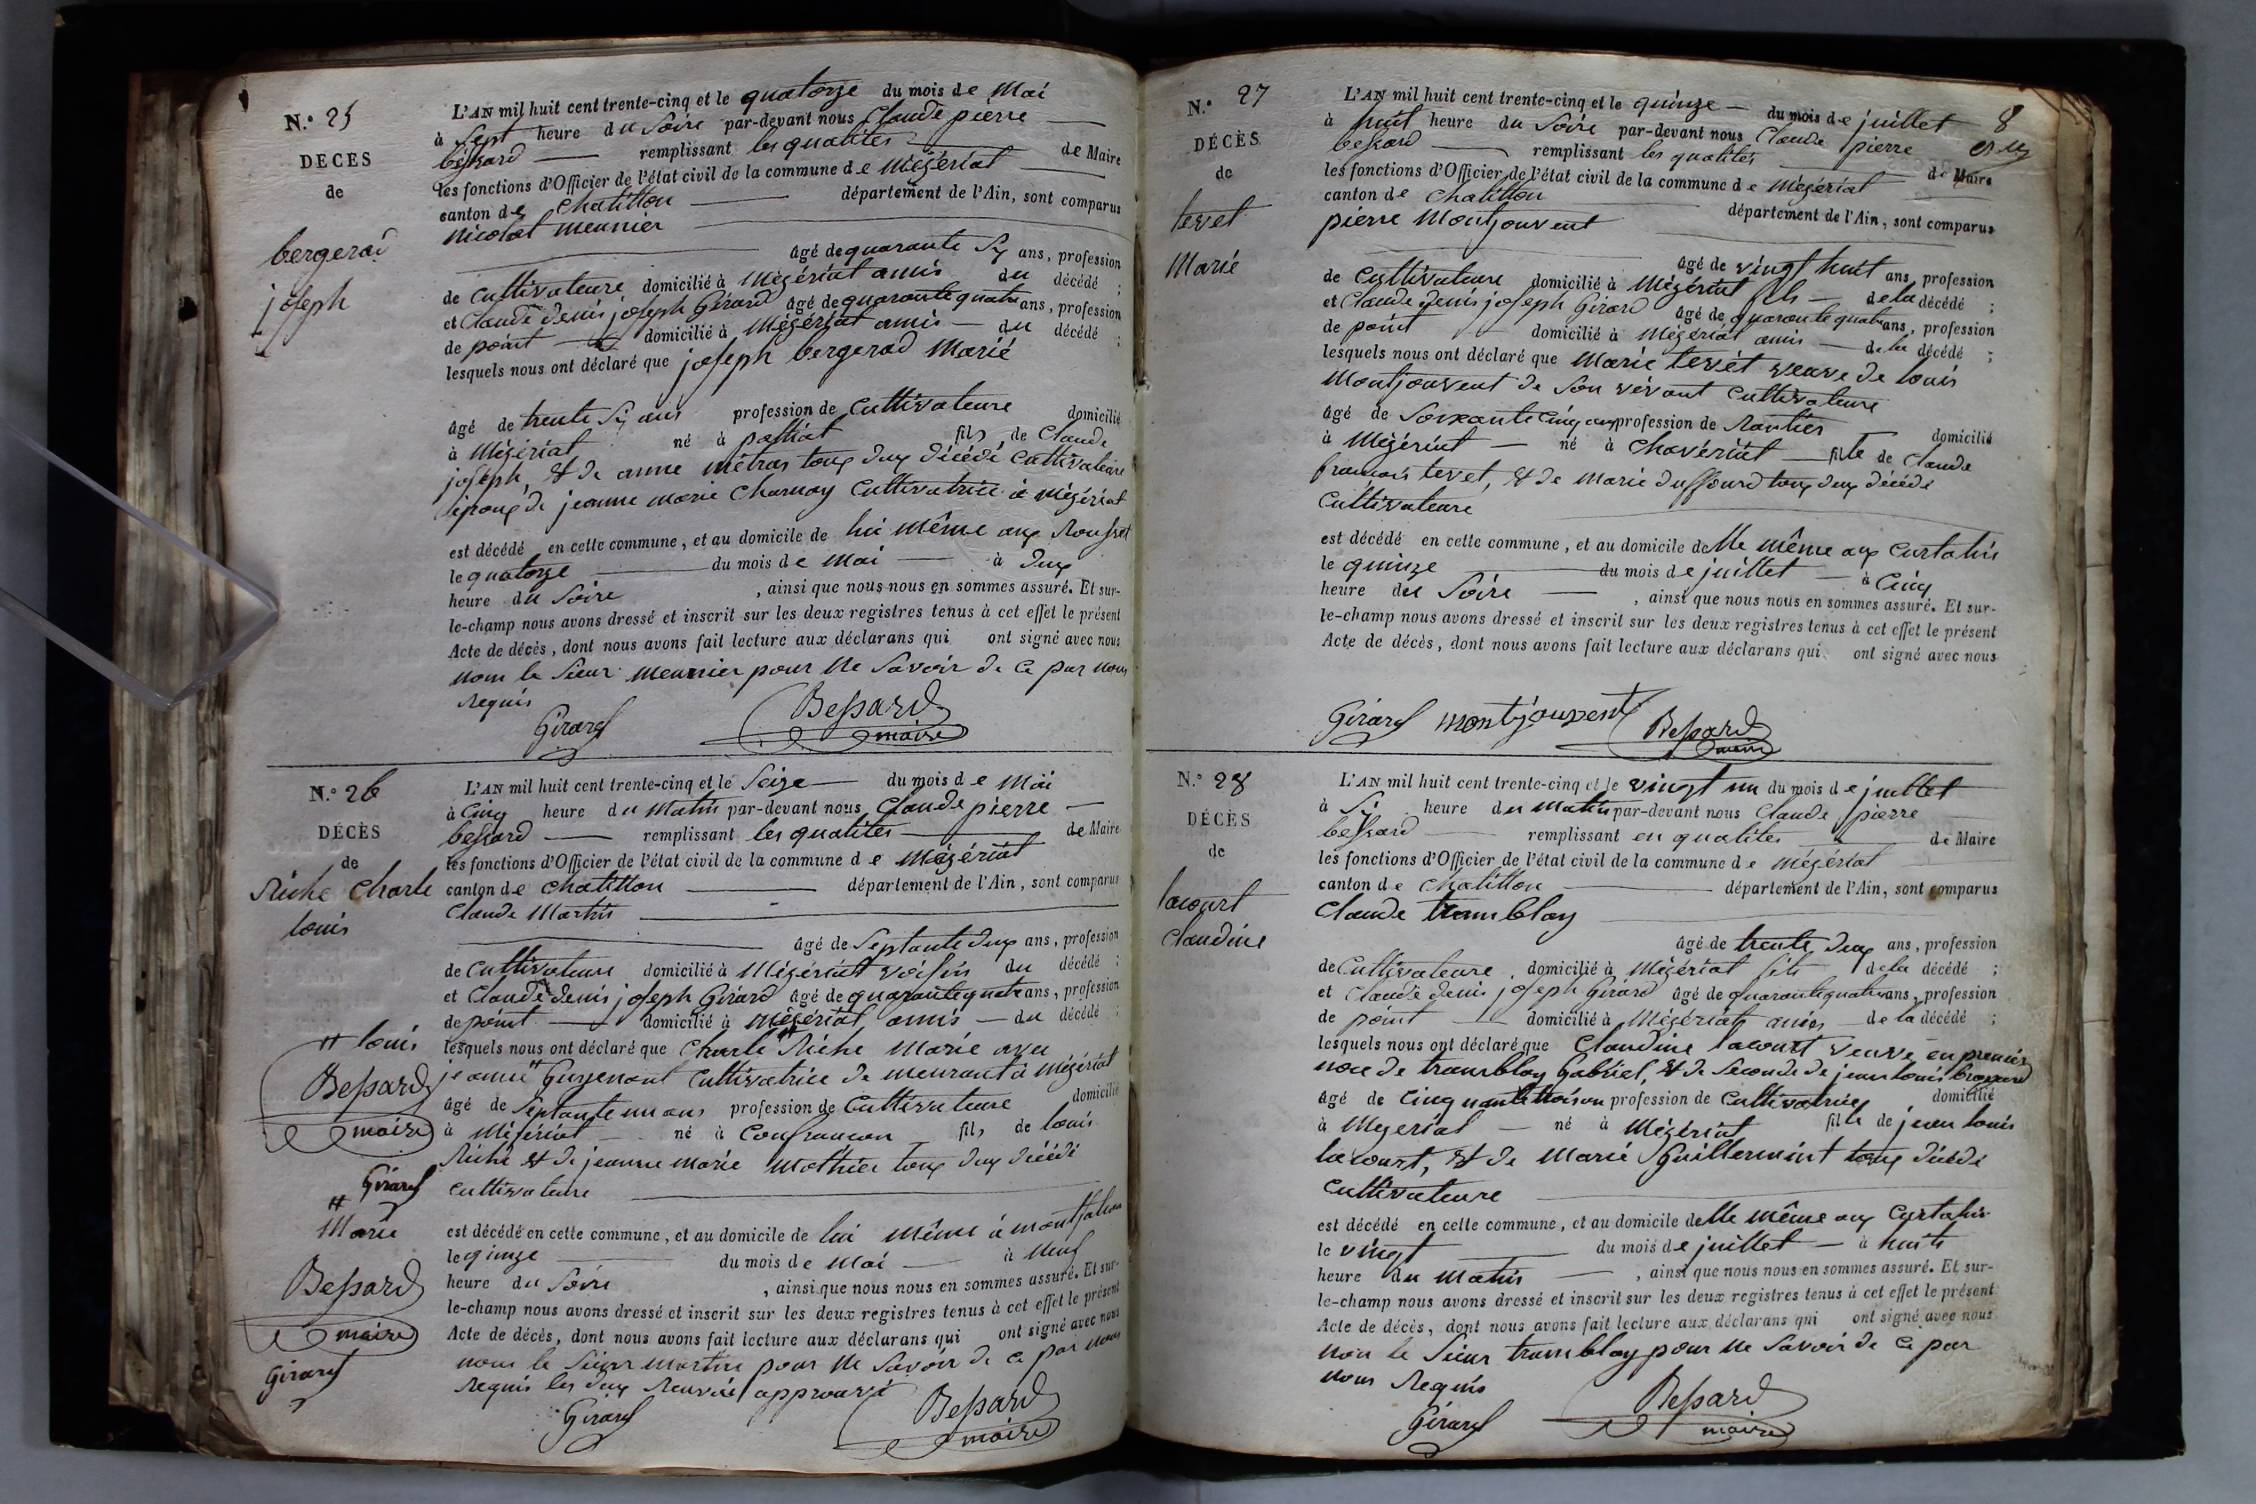 N.° 25
DÉCÈS
de
bergerad
joseph
L'AN mil huit cent trente-cinq et le quatorze du mois de Mai
à Sept heure du Soire par-devant nous Claude pierre
béssard remplissant les qualités de Maire
les fonctions d'Officier de l'état civil de la commune de Mézériat
canton de Chatillon département de l'Ain, sont comparus
nicolat meunier
âgé de quarante Sy ans, profession
de Cultivateure domicilié à Mézériat amis du décédé ;
et Claude denis joseph Girard âgé de quarante quatre ans, profession
de point domicilié à Mézériat amis du décédé ;
lesquels nous ont déclaré que joseph bergerad Marié
âgé de trente Sy ans profession de Cultivateure domicilié
à Mézériat né à polliat fils de Claude
joseph, & de anne métras tous duy décédé Cultivateure
époux di jeanne marie Charnay Cultivatrice à mézériat
est décédé en cette commune, et au domicile de lui même aux Rousset
le quatorze du mois de Mai à Duy
heure du Soire, ainsi que nous nous en sommes assuré. Et sur-
le-champ nous avons dressé et inscrit sur les deux registres tenus à cet effet le présent
Acte de décès, dont nous avons fait lecture aux déclarans qui ont signé avec nous
nom le Sieur meunier pour ne Savoir de ce par nous
Requis
Girard Bessard
maire
N.° 26
DÉCÈS
de
Riche Charle
louis
# louis
Bessard
maire
Girard
# Marie
Bessard
maire
Girard
L'AN mil huit cent trente-cinq et le Seize du mois de Mai
à Cinq heure du Matin par-devant nous Claude pierre
bessard remplissant les qualités de Maire
les fonctions d'Officier de l'état civil de la commune de Mézériat
canton de Chatillon département de l'Ain, sont comparus
Claude Martin
âgé de Septante duy ans, profession
de Cultivateure domicilié à Mézériat voisin du décédé ;
et Claude denis joseph Girard âgé de quarante quatre ans, profession
de point domicilié à mézériat amis du décédé ;
lesquels nous ont déclaré que Charle # Riche Marié avec
jeanne # Guyenont Cultivatrice de meurant à Mézériat
âgé de Septante un ans profession de Cultivateure domicilié
à Mézériat né à Confrançon fils de louis
Riche & di jeanne marie Mathier tous duy décédé
Cultivateure
est décédé en cette commune, et au domicile de lui même à montfalcon
le quinze du mois de Mai à Neuf
heure du Soire, ainsi que nous nous en sommes assuré. Et sur-
le-champ nous avons dressé et inscrit sur les deux registres tenus à cet effet le présent
Acte de décès, dont nous avons fait lecture aux déclarans qui ont signé avec nous
nom le Sieur martin pour ne Savoir de ce par nous
Requis les duy Renvoie approuvé
Girard Bessard
maire
8
N.° 27
DÉCÈS
de
tevet
Marie
L'AN mil huit cent trente-cinq et le quinze du mois de juillet
à huit heure du Soire par-devant nous Claude pierre
bessard remplissant les qualités de Maire
les fonctions d'Officier de l'état civil de la commune de Mézériat
canton de Chatillon département de l'Ain, sont comparus
pierre Montjouvent
âgé de vingt huit ans, profession
de Cultivateure domicilié à Mézériat fils de la décédé ;
et Claude denis joseph Girard âgé de quarante quatre ans, profession
de point domicilié à Mézériat amis de la décédé ;
lesquels nous ont déclaré que Marie tevét veuve de louis
Montjouvent de Son vivant Cultivateure
âgé de Soixante Cinq ans profession de Rantier domicilié
à Mézériat né à Chavériat fille de Claude
francois tevet, & de Marie duffourd tous duy décédé
Cultivateure
est décédé en cette commune, et au domicile delle même aux Curtahis
le quinze du mois de juillet à Cinq
heure du Soire, ainsi que nous nous en sommes assuré. Et sur-
le-champ nous avons dressé et inscrit sur les deux registres tenus à cet effet le présent
Acte de décès, dont nous avons fait lecture aux déclarans qui ont signé avec nous
Girard montjouvent Bessard
maire
N.° 28
DÉCÈS
de
lacourt
Claudine
L'AN mil huit cent trente-cinq et le vingt un du mois de juillet
à Sy heure du Matin par-devant nous Claude pierre
bessard remplissant en qualités de Maire
les fonctions d'Officier de l'état civil de la commune de mézériat
canton de Chatillon département de l'Ain, sont comparus
Claude tramblay
âgé de trente duy ans, profession
de Cultivateure domicilié à Mézériat fils de la décédé ;
et Claude denis joseph Girard âgé de quarante quatre ans, profession
de point domicilié à Mézériat amies de la décédé ;
lesquels nous ont déclaré que Claudine lacourt veuve en premier
noce de tramblay Gabriel, & de Seconde de jean louis brossard
âgé de Cinquante troison profession de Cultivatrice domicilié
à Mezeriat né à Mézériat fille de jean louis
lacourt, & de Marie Guillerminit tous décédé
Cultivateure
est décédé en cette commune, et au domicile delle même aux Curtahis
le vingt du mois de juillet à huite
heure du Matin, ainsi que nous nous en sommes assuré. Et sur-
le-champ nous avons dressé et inscrit sur les deux registres tenus à cet effet le présent
Acte de décès, dont nous avons fait lecture aux déclarans qui ont signé avec nous
non le Sieur tramblay pour ne Savoir de ce par
nous Requis
Girard Bessard
maire